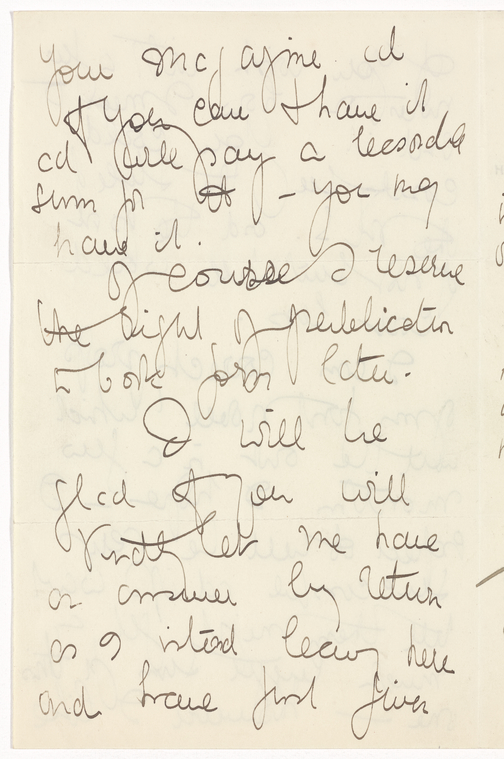 your magazine &
if you care to have it
& will pay a reasonable
sum for it - you may
have it.
Of course I reserve
the right of publication
in book form later.
I will be
glad if you will
kindly let me have
an answer by return
as I intend leaving here
and have just given